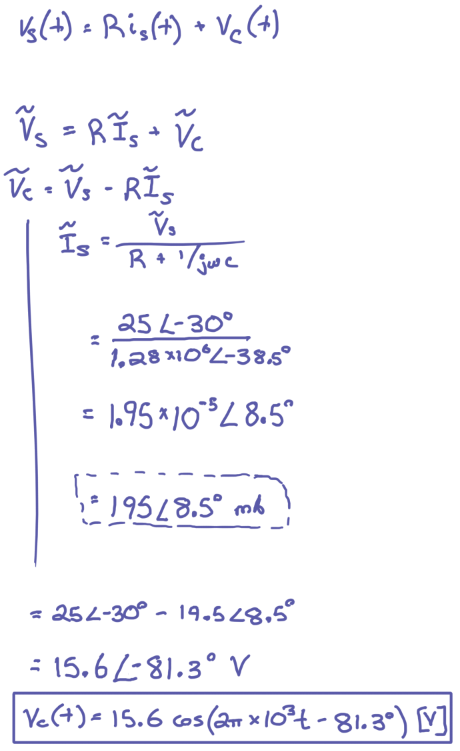 vs(t) = Ris(t) + Vc(t)
Ṽs = RĨs + Ṽc
Ṽc = Ṽs - RĨs
Ĩs = Ṽs / (R + 1/jωc)
= 25∠-30° / 1.28x10⁶∠-38.5°
= 1.95x10⁻⁵∠8.5°
= 195∠8.5° mA
= 25∠-30° - 19.5∠8.5°
= 15.6∠-81.3° V
Vc(t) = 15.6 cos(2π x10³t - 81.3°) [V]